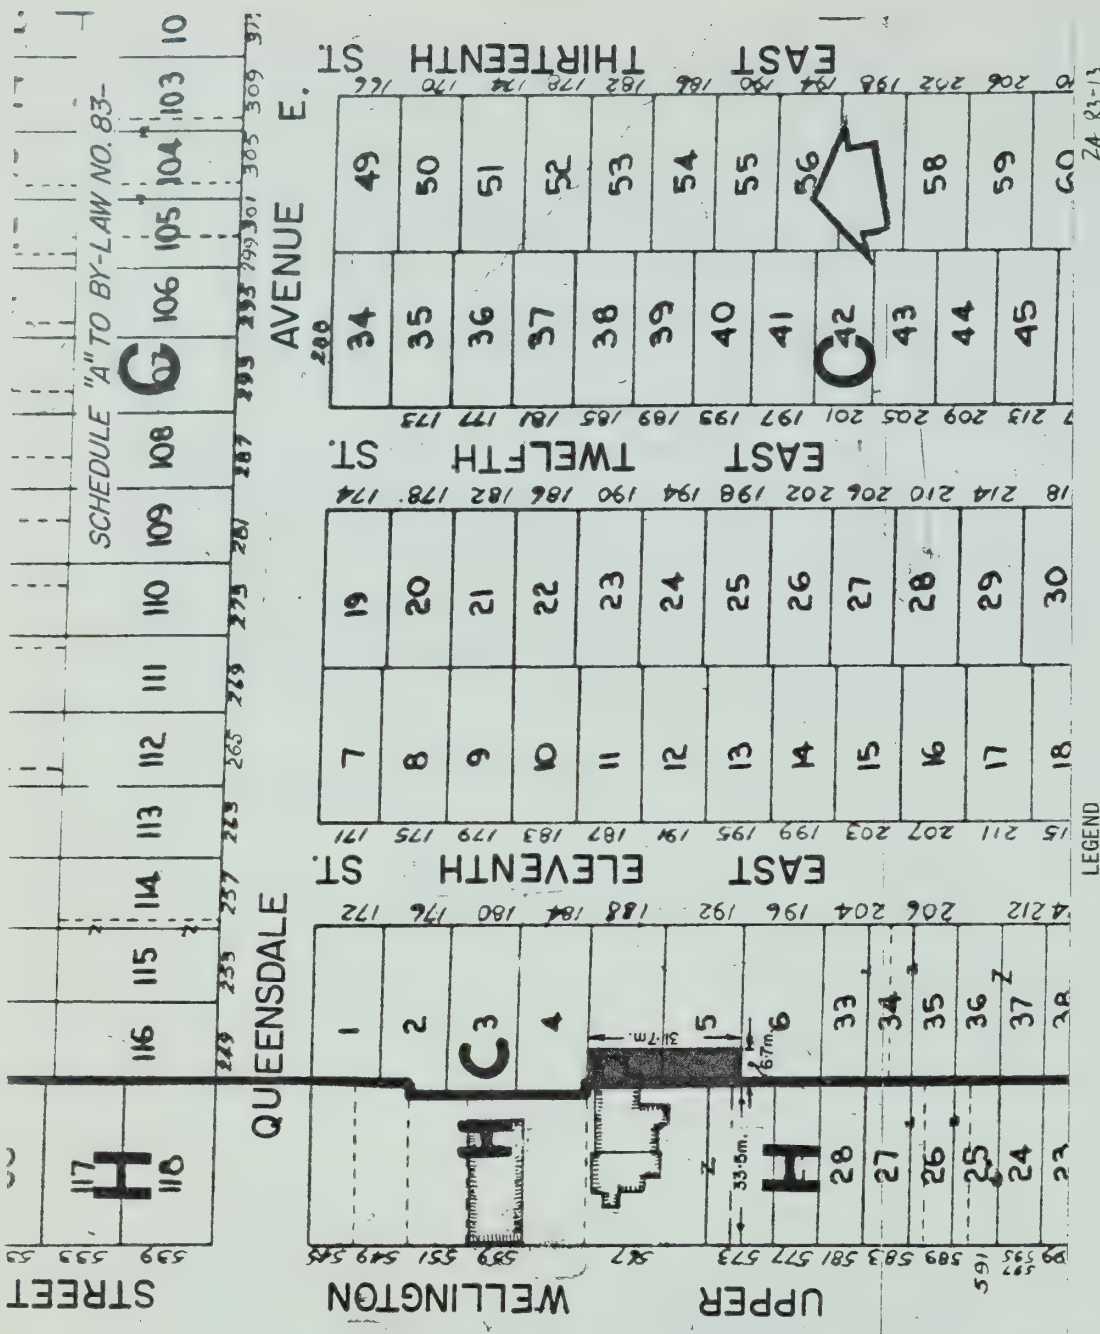 SCHEDULE "A" TO BY-LAW NO. 83-
10
103
104
105
106
C
108
109
110
111
112
113
114
115
116
117
H
118
309
305
301
299
295
293
287
281
275
269
265
263
257
233
229
QUEENSDALE AVENUE E.
EAST THIRTEENTH ST.
166 170 174 178 182 186 190 194 198 202 206
49 50 51 52 53 54 55 56 58 59 60
288
34 35 36 37 38 39 40 41 42 43 44 45
C
173 177 181 185 189 193 197 201 205 209 213
EAST TWELFTH ST.
174 178 182 186 190 194 198 202 206 210 214 18
19 20 21 22 23 24 25 26 27 28 29 30
7 8 9 10 11 12 13 14 15 16 17 18
171 175 179 183 187 191 195 199 203 207 211 15
EAST ELEVENTH ST.
172 176 180 184 188 192 196 204 206 212
1 2 3 4 5 6 33 34 35 36 37 38
C
31·7m.
6·7m.
33·5m.
H
H
28 27 26 25 24 23
545 549 551 559 567 573 577 581 583 589 591 595 597
533 539
UPPER WELLINGTON STREET
LEGEND
ZA 83-13